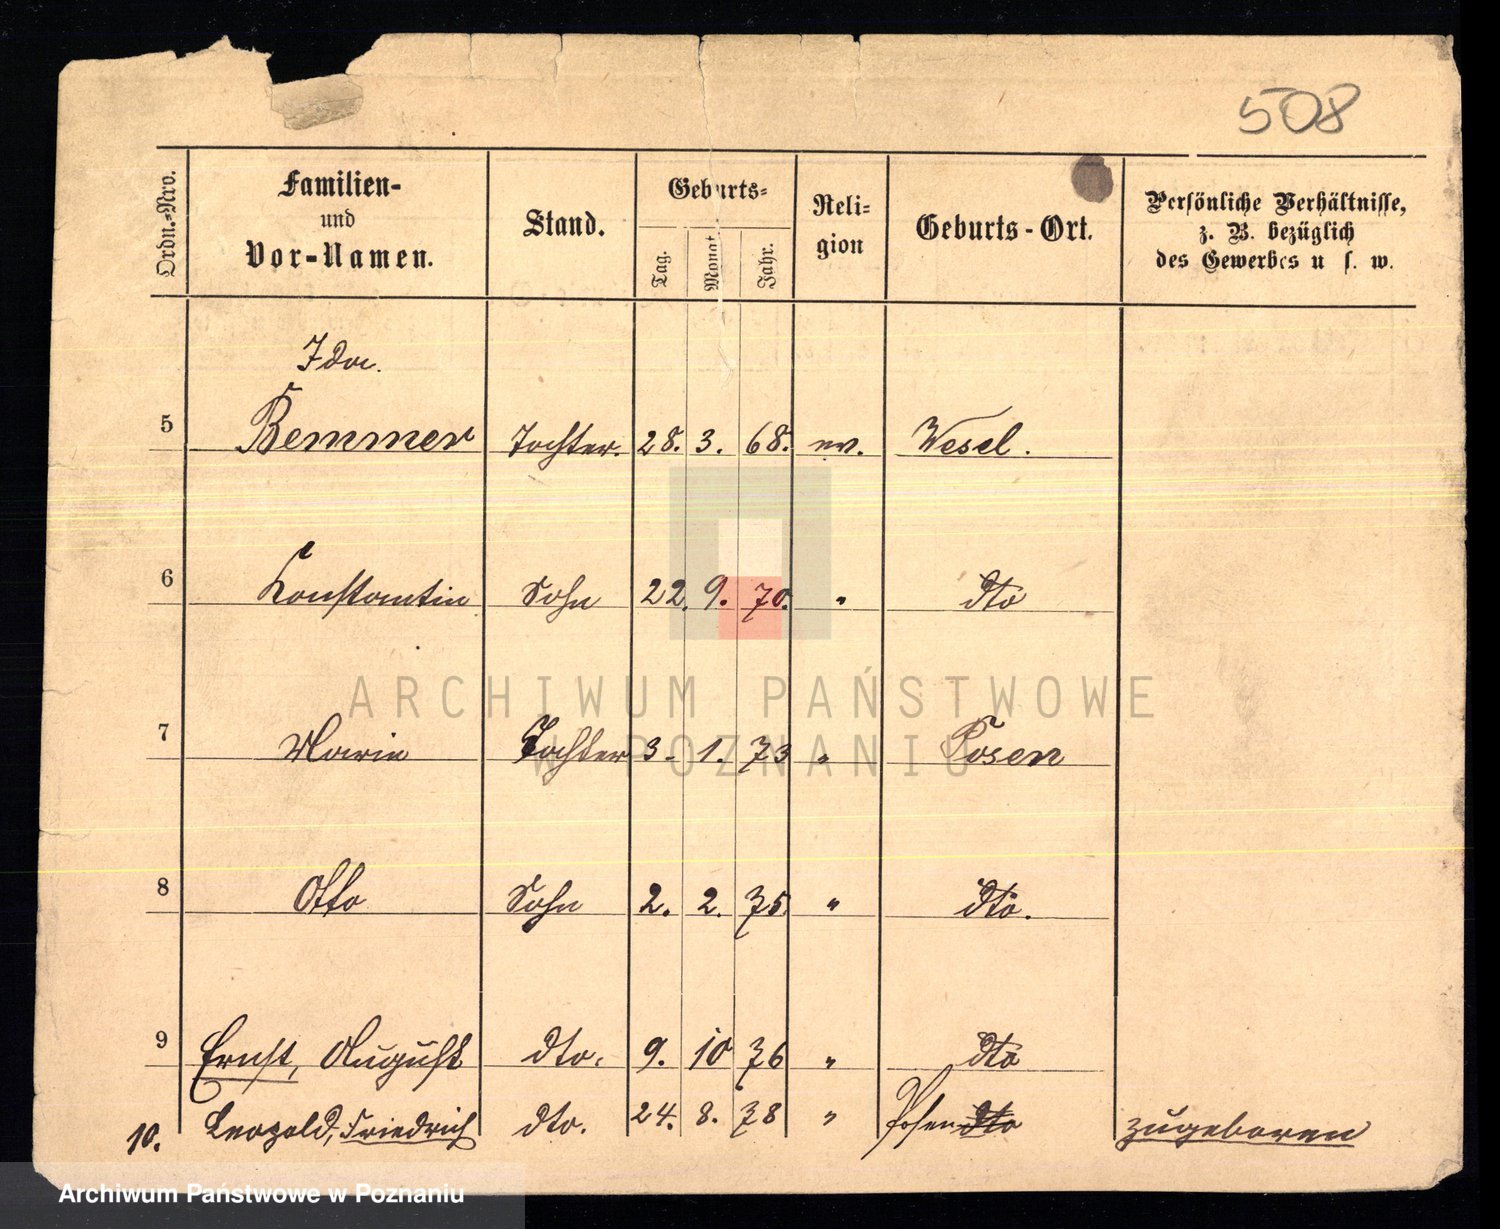 508
Ordn.-Nro.
Familien-
und
Vor-Namen.
Stand.
Geburts-
Tag.
Monat
Jahr.
Reli-
gion
Geburts-Ort.
Persönliche Verhältnisse,
z. B. bezüglich
des Gewerbes u. s. w.
Ida.
5 Bemmer Tochter. 28. 3. 68. ev. Wesel.
6 Konstantin Sohn 22. 9. 70. " dto
7 Marie Tochter 3. 1. 73 " Posen
8 Otto Sohn 2. 2. 75. " dto.
9 Ernst, August dto. 9. 10 76 " dto
10. Leopold, Friedrich dto. 24. 8. 78 " Posen dto zugeboren
ARCHIWUM PAŃSTWOWE
W POZNANIU
Archiwum Państwowe w Poznaniu